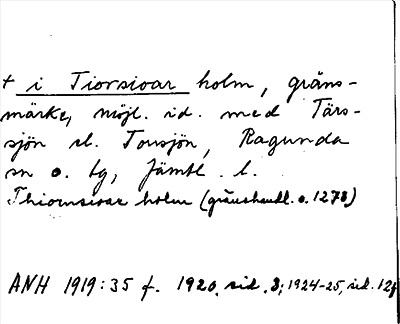 + i Tiorsioar holm, gräns-
märke, möjl. id. med Tärs-
sjön el. Torsjön, Ragunda
sn o. tg, Jämtl. l.
Thiornsioar holm (gränshandl. o. 1273)
ANH 1919:35 f. 1920, sid. 8; 1924-25, sid. 12f